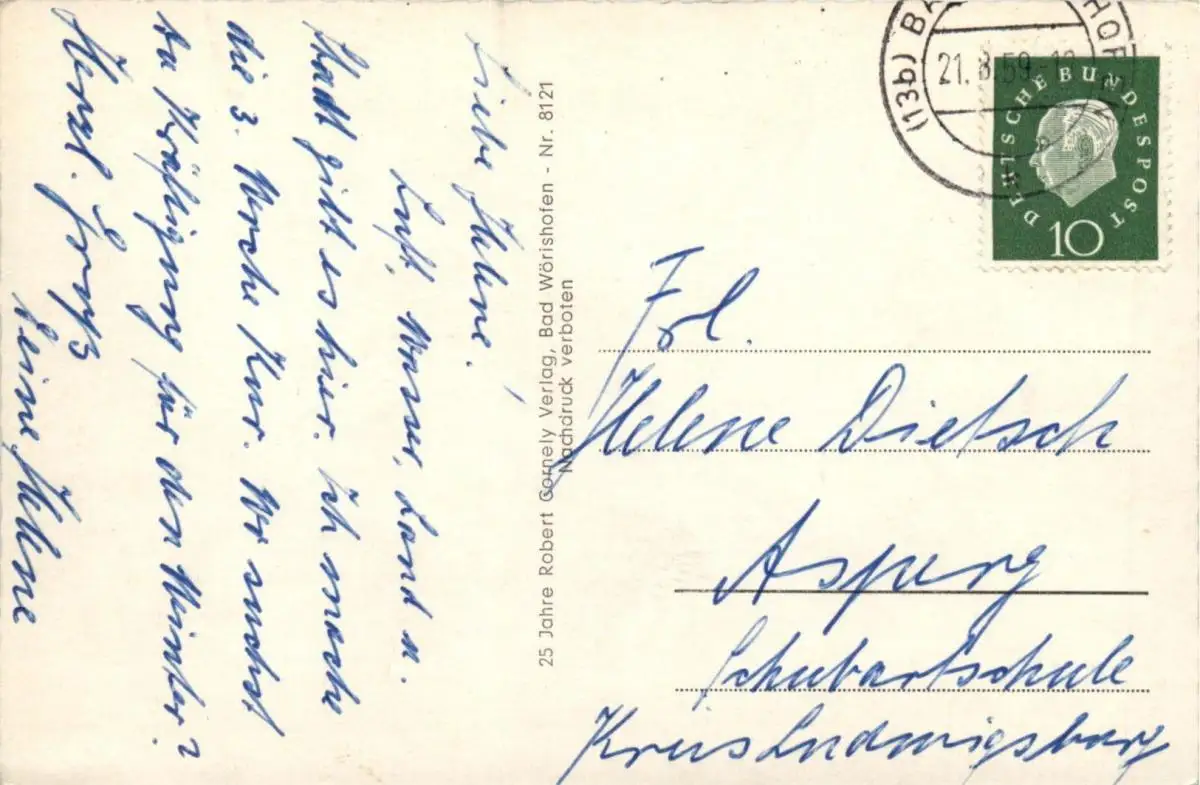 Liebe Helene!
Luft, Wasser, Land u.
Stadt gibt es hier. Ich mache
die 3. Woche Kur. Wo suchst
du Kräftigung für den Winter?
Herzl. Gruß
Deine Helene
25 Jahre Robert Cornely Verlag, Bad Wörishofen - Nr. 8121
Nachdruck verboten
(13b) BA HOF
21. 8. 59 - 18
DEUTSCHE BUNDESPOST
10
Frl.
Helene Dietsch
Asperg
Schubartschule
Kreis Ludwigsburg